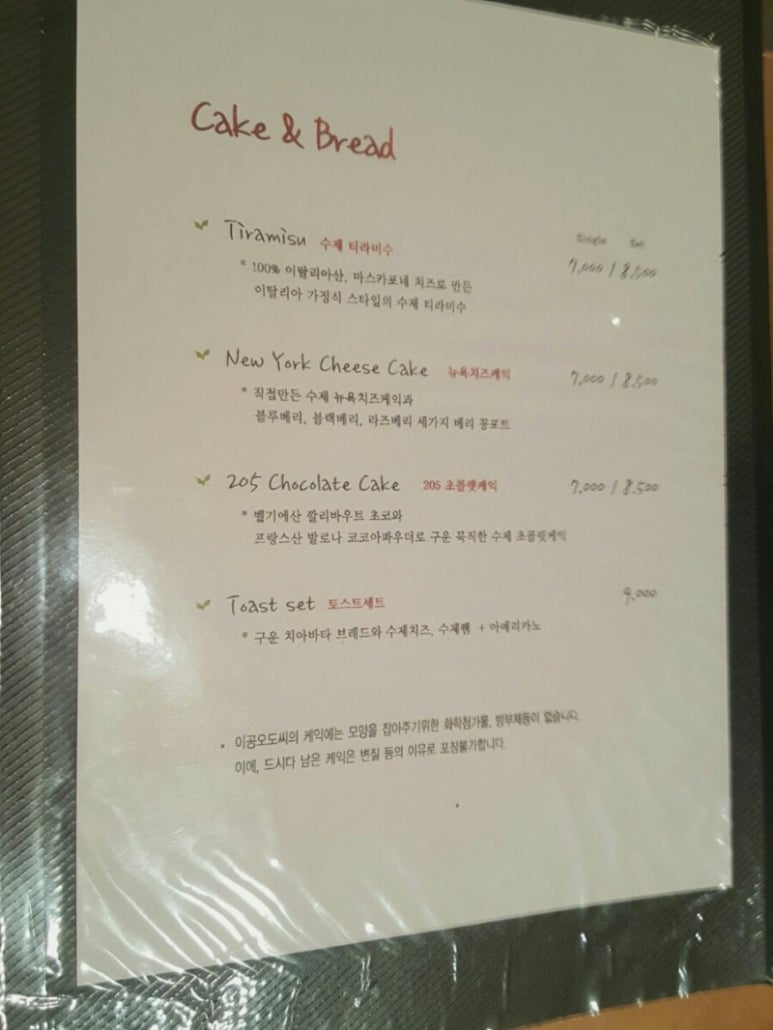 Cake & Bread
Tiramisu 수제 티라미수
Single Set
7,000 / 8,500
* 100% 이탈리아산, 마스카포네 치즈로 만든
이탈리아 가정식 스타일의 수제 티라미수
New York Cheese Cake 뉴욕치즈케익 7,000 / 8,500
* 직접만든 수제 뉴욕치즈케익과
블루베리, 블랙베리, 라즈베리 세가지 베리 꽁포트
205 Chocolate Cake 205 초콜렛케익 7,000 / 8,500
* 벨기에산 깔리바우트 초코와
프랑스산 발로나 코코아파우더로 구운 묵직한 수제 초콜릿케익
Toast set 토스트세트 9,000
* 구운 치아바타 브레드와 수제치즈, 수제쨈 + 아메리카노
• 이공오도씨의 케익에는 모양을 잡아주기위한 화학첨가물, 방부제등이 없습니다.
이에, 드시다 남은 케익은 변질 등의 이유로 포장불가합니다.